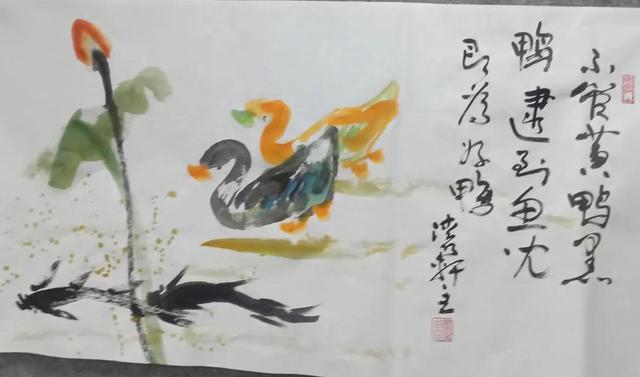 不管黄鸭黑
鸭逮到鱼
即为好鸭
轩主